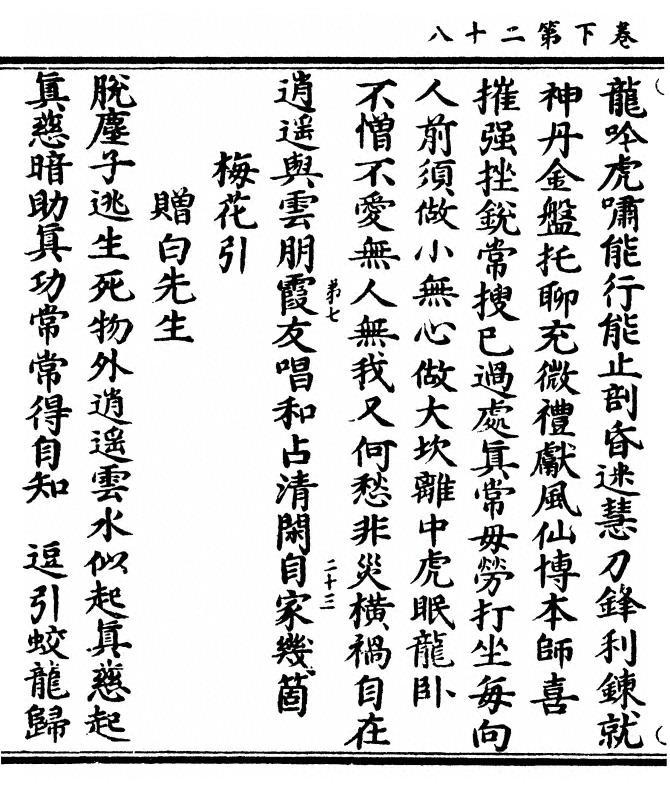 卷下第二十八
龍吟虎嘯能行能止剖昏迷慧刀鋒利鍊就
神丹金盤托聊充微禮獻風仙博本師喜
摧强挫銳常搜己過處眞常毋勞打坐每向
人前須做小無心做大坎離中虎眠龍卧
不憎不愛無人無我又何愁非災橫禍自在
逍遥與雲朋霞友唱和占清閑自家幾箇
第七
二十三
梅花引
贈白先生
脫塵子逃生死物外逍遥雲水似起眞慈起
眞慈暗助眞功常常得自知 逗引蛟龍歸